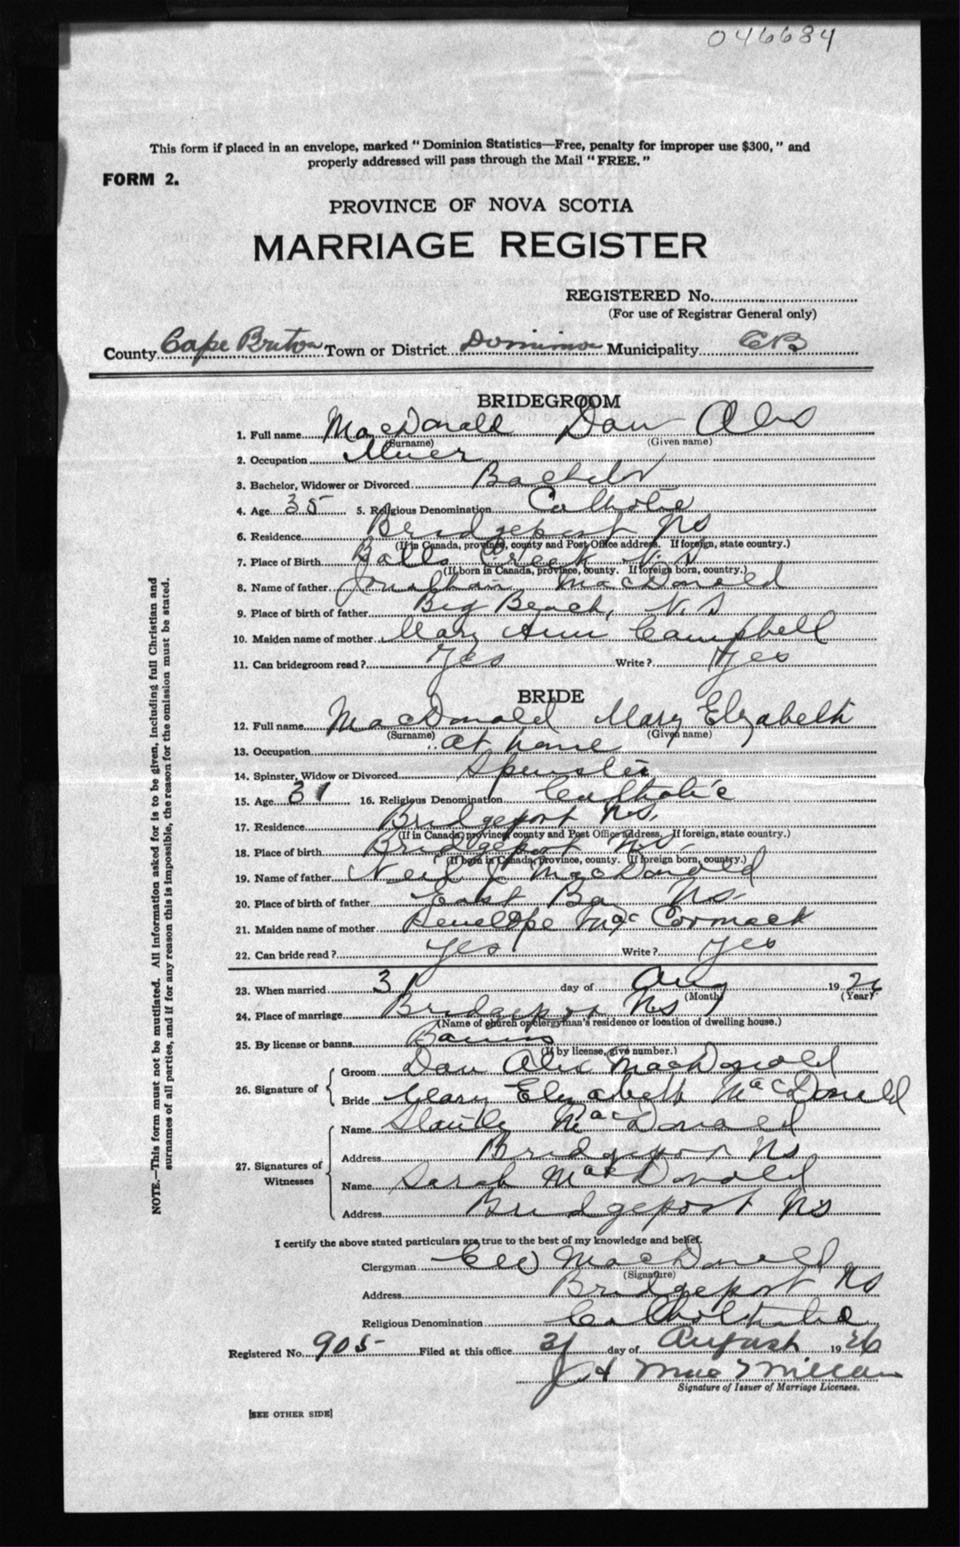 046684
This form if placed in an envelope, marked "Dominion Statistics—Free, penalty for improper use $300," and
properly addressed will pass through the Mail "FREE."
FORM 2.
PROVINCE OF NOVA SCOTIA
MARRIAGE REGISTER
REGISTERED No.
(For use of Registrar General only)
County Cape Breton Town or District Dominion Municipality CB
BRIDEGROOM
1. Full name MacDonald Dan Alex
(Surname) (Given name)
2. Occupation Miner
3. Bachelor, Widower or Divorced Bachelor
4. Age 35 5. Religious Denomination Catholic
6. Residence Bridgeport NS
(If in Canada, province, county and Post Office address. If foreign, state country.)
7. Place of Birth Balls Creek N.S
(If born in Canada, province, county. If foreign born, country.)
8. Name of father Jonathan MacDonald
9. Place of birth of father Big Beach, N.S
10. Maiden name of mother Mary Ann Campbell
11. Can bridegroom read? Yes Write? Yes
BRIDE
12. Full name MacDonald Mary Elizabeth
(Surname) (Given name)
13. Occupation at home
14. Spinster, Widow or Divorced Spinster
15. Age 31 16. Religious Denomination Catholic
17. Residence Bridgeport NS.
(If in Canada, province, county and Post Office address. If foreign, state country.)
18. Place of birth Bridgeport NS.
(If born in Canada, province, county. If foreign born, country.)
19. Name of father Neil MacDonald
20. Place of birth of father East Bay NS.
21. Maiden name of mother Penelope McCormack
22. Can bride read? Yes Write? Yes
23. When married 31 day of Aug 1926
(Month) (Year)
24. Place of marriage Bridgeport NS
(Name of church or clergyman's residence or location of dwelling house.)
25. By license or banns Banns
(If by license, give number.)
26. Signature of Groom Dan Alex MacDonald
Bride Mary Elizabeth MacDonald
27. Signatures of Witnesses Name MacDonald
Address Bridgeport NS
Name Sarah MacDonald
Address Bridgeport NS
I certify the above stated particulars are true to the best of my knowledge and belief.
Clergyman MacDonald
(Signature)
Address Bridgeport NS
Religious Denomination
Registered No. 905 Filed at this office 31 day of August 1926
MacMillan
Signature of Issuer of Marriage Licenses.
[SEE OTHER SIDE]
NOTE.—This form must not be mutilated. All information asked for is to be given, including full Christian and
surnames of all parties, and if for any reason this is impossible, the reason for the omission must be stated.